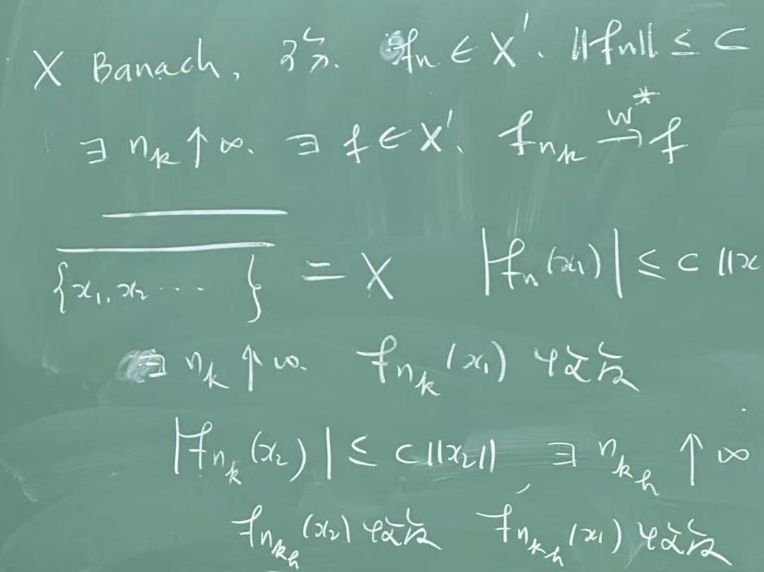 X Banach, 可分. fₙ ∈ X'. ‖fₙ‖ ≤ C
∃ nₖ ↑ ∞. ∃ f ∈ X'. f_{nₖ} →^{w*} f
\overline{{x₁, x₂ ⋯ }} = X |fₙ(x₁)| ≤ C ‖x
∃ nₖ ↑ ∞. f_{nₖ}(x₁) 収束
|f_{nₖ}(x₂)| ≤ C‖x₂‖ ∃ n_{k_h} ↑ ∞
f_{n_{k_h}}(x₂) 収束 f_{n_{k_h}}(x₁) 収束